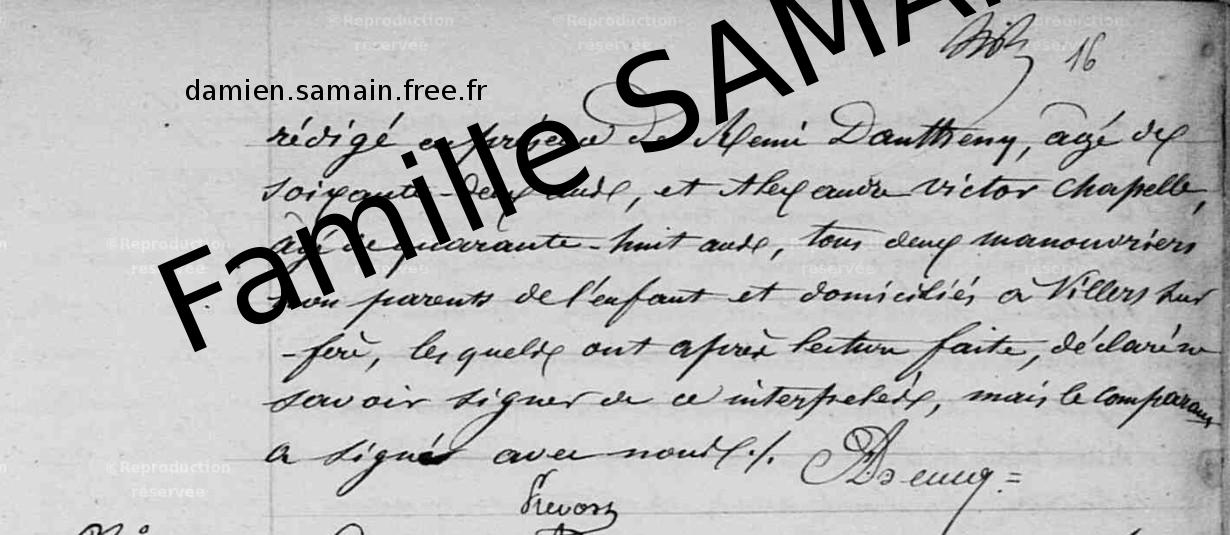 ©Reproduction réservée
©Reproduction réservée
16
damien.samain.free.fr
Famille SAMA
rédigé en présence de Remi Dautheny, agé de
soixante-deux ans, et Alexandre victor chapelle,
âgé de quarante-huit ans, tous deux manouvriers
non parents de l'enfant et domiciliés à Villers sur
-fère, lesquels ont après lecture faite, déclaré ne
savoir signer de ce interpelés, mais le comparant
a signé avec nous ./.
©Reproduction réservée
Prevost